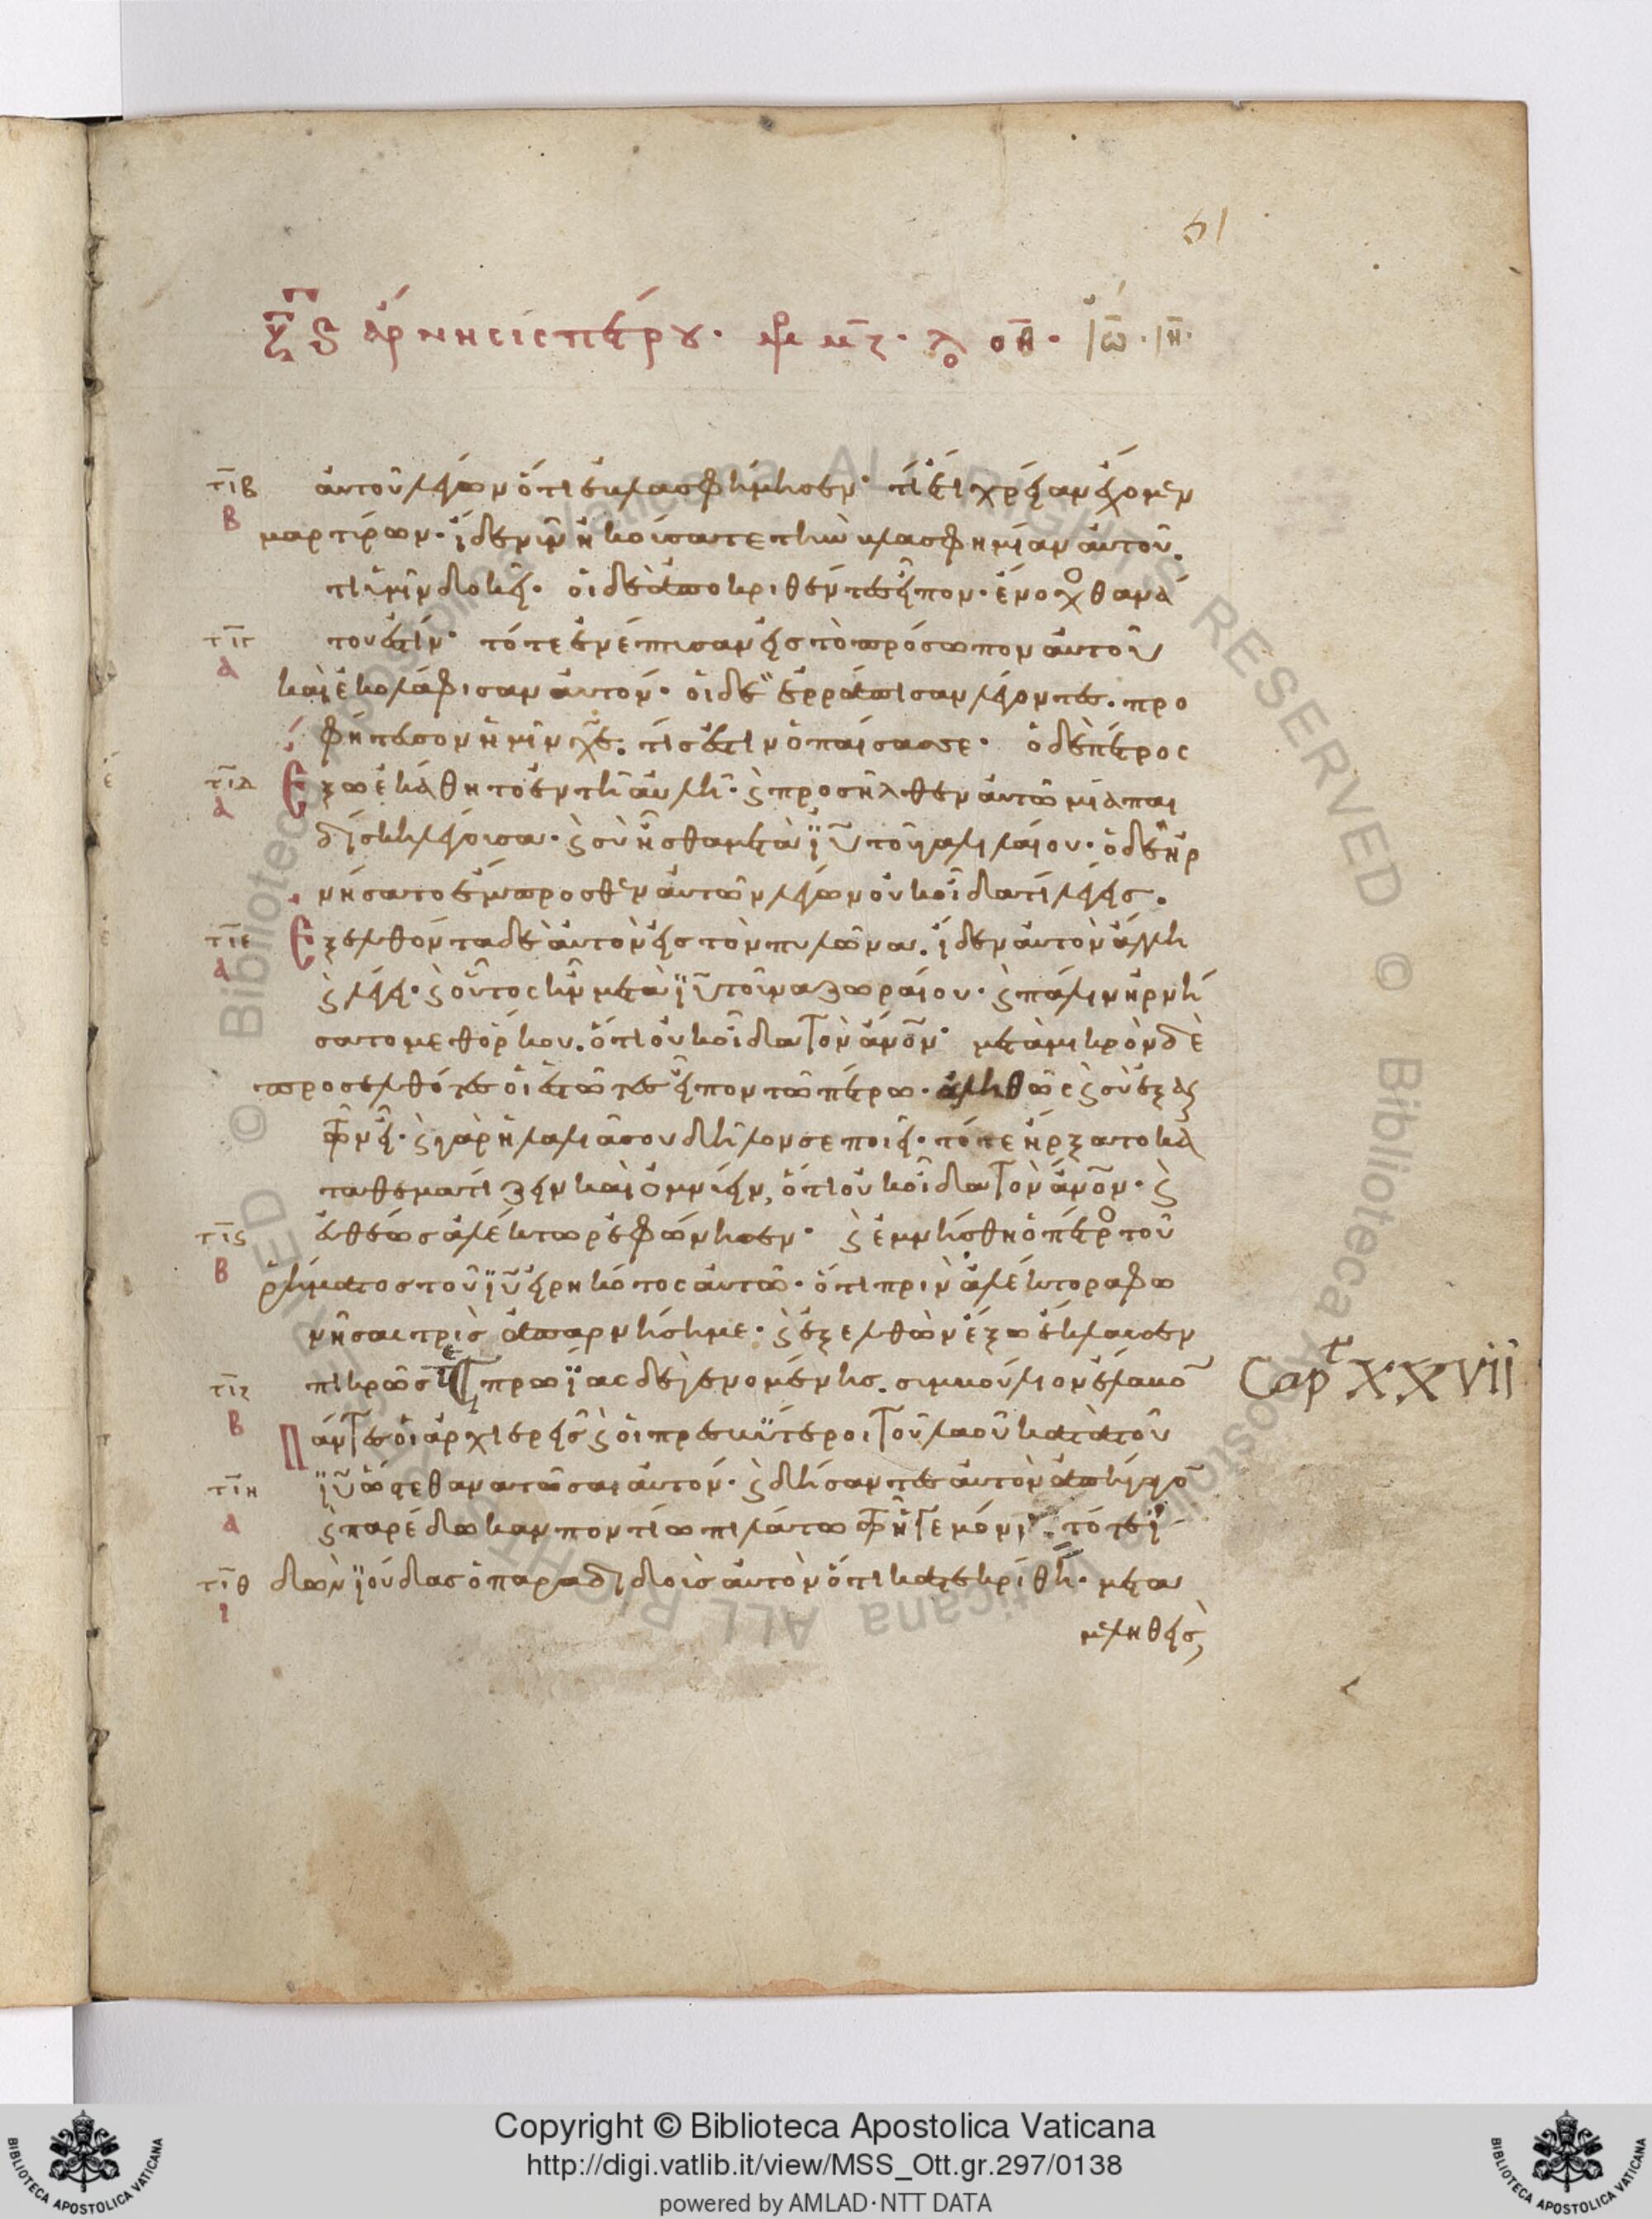 61
ξς ἄρνησις πέτρου. μρ μζ. λο οη. ιω. ιη.
τιβ αὐτοῦ λέγων ὅτι ἐβλασφήμησεν· τί ἔτι χρείαν ἔχομεν
β μαρτύρων· ἴδε νῦν ἠκούσατε τὴν βλασφημίαν αὐτοῦ.
τί ὑμῖν δοκεῖ· οἱ δὲ ἀποκριθέντες εἶπον· ἔνοχος θανά
τιγ του ἐστίν· τότε ἐνέπτυσαν εἰς τὸ πρόσωπον αὐτοῦ
α καὶ ἐκολάφισαν αὐτόν· οἱ δὲ ἐρράπισαν λέγοντες. προ
φήτευσον ἡμῖν χε. τίς ἐστιν ὁ παίσας σε· ὁ δὲ πέτρος
τιδ ἔξω ἐκάθητο ἐν τῇ αὐλῇ· ϗ προσῆλθεν αὐτῶ μία παι
α δίσκη λέγουσα· ϗ σὺ ἦσθα μετὰ ἰυ τοῦ γαλιλαίου· ὁ δὲ ἠρ
νήσατο ἔμπροσθεν αὐτῶν λέγων οὐκ οἶδα τί λέγεις.
τιε ἐξελθόντα δὲ αὐτὸν εἰς τὸν πυλῶνα. ἴδεν αὐτὸν ἄλλη
α ϗ λέγει· ϗ οὗτος ἦν μετὰ ἰυ τοῦ ναζωραίου· ϗ πάλιν ἠρνή
σατο μεθ ὅρκου. ὅτι οὐκ οἶδα τὸν ἄνον· μετὰ μικρὸν δὲ
προσελθόντες οἱ ἑστῶτες εἶπον τῶ πέτρω· ἀληθῶς ϗ σὺ ἐξ αὐ
τῶν εἶ· ϗ γὰρ ἡ λαλιά σου δῆλον σε ποιεῖ· τότε ἤρξατο κα
ταθεματίζειν καὶ ὀμνύειν, ὅτι οὐκ οἶδα τὸν ἄνον· ϗ
τις εὐθέως ἀλέκτωρ ἐφώνησεν· ϗ ἐμνήσθη ὁ πέτρος τοῦ
β ῥήματος τοῦ ἰυ εἰρηκότος αὐτῶ· ὅτι πρὶν ἀλέκτορα φω
νῆσαι τρὶς ἀπαρνήση με· ϗ ἐξελθὼν ἔξω ἔκλαυσεν
τιζ πικρῶς πρωΐας δὲ γενομένης. συμβούλιον ἔλαβον Capt XXVII
β πάντες οἱ ἀρχιερεῖς ϗ οἱ πρεσβύτεροι τοῦ λαοῦ κατὰ τοῦ
τιη ἰυ ὥστε θανατῶσαι αὐτόν· ϗ δήσαντες αὐτὸν ἀπήγαγον
α ϗ παρέδωκαν ποντίω πιλάτω τῶ ἡγεμόνι. τότε ἰ
τιθ δὼν ἰούδας ὁ παραδιδοὺς αὐτὸν ὅτι κατεκρίθη· μετα
ι μεληθεὶς
Copyright © Biblioteca Apostolica Vaticana
http://digi.vatlib.it/view/MSS_Ott.gr.297/0138
powered by AMLAD·NTT DATA